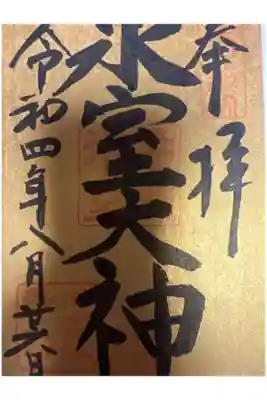 奉拝
氷室天神
令和四年八月廿六日